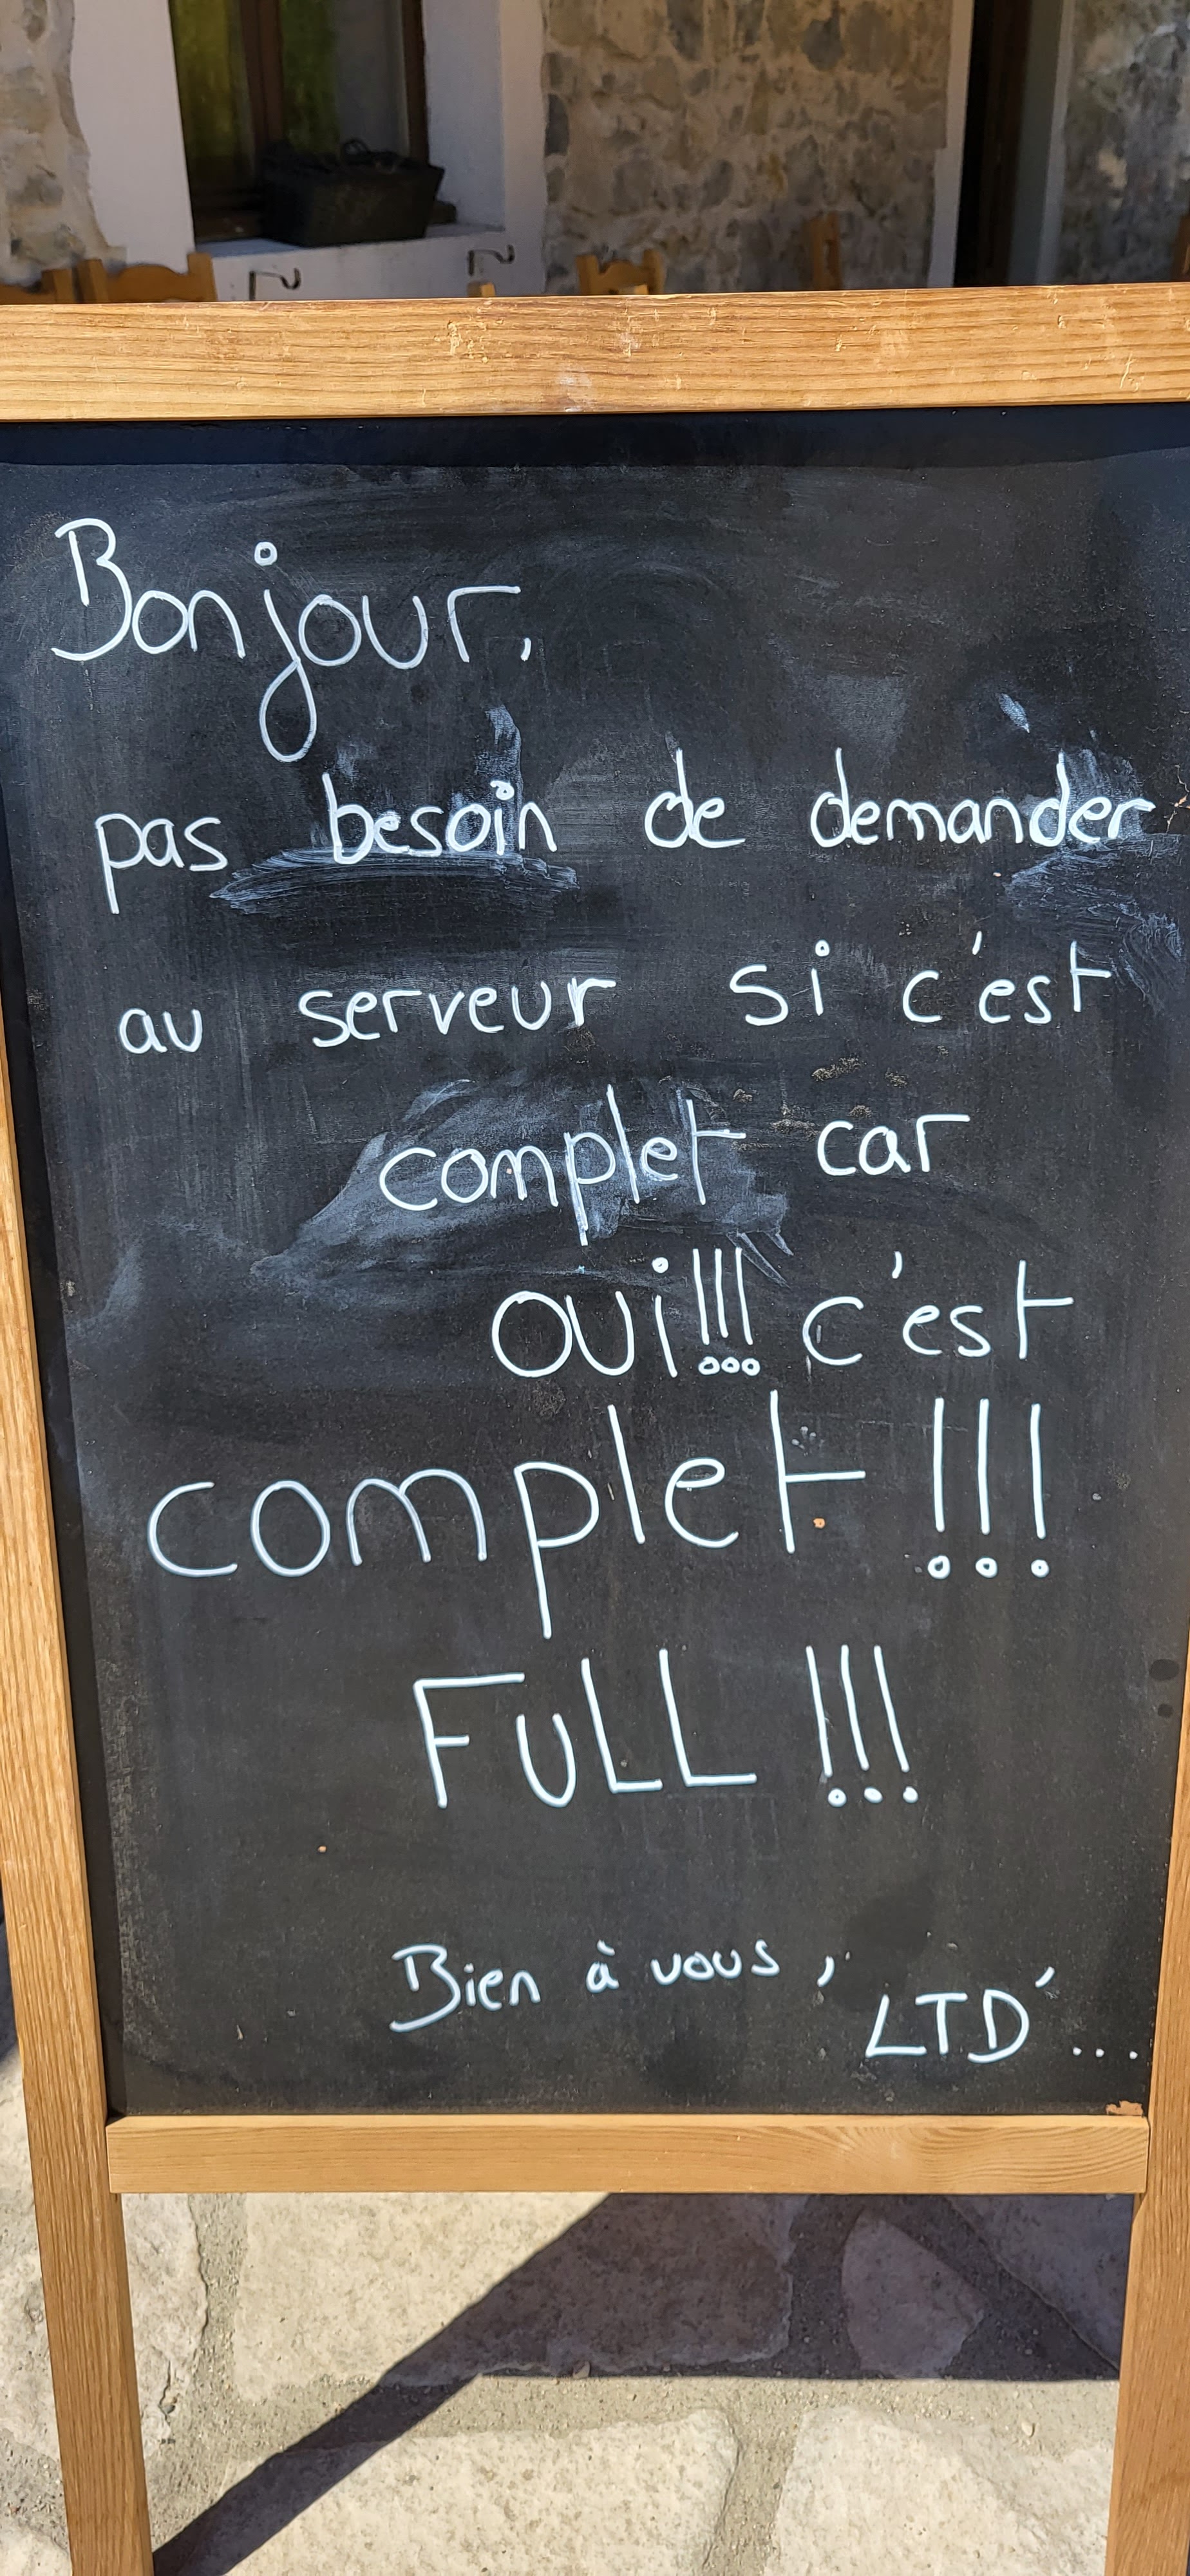 Bonjour,
pas besoin de demander
au serveur si c'est
complet car
oui!!! c'est
complet !!!
FULL !!!
Bien à vous,
LTD'...